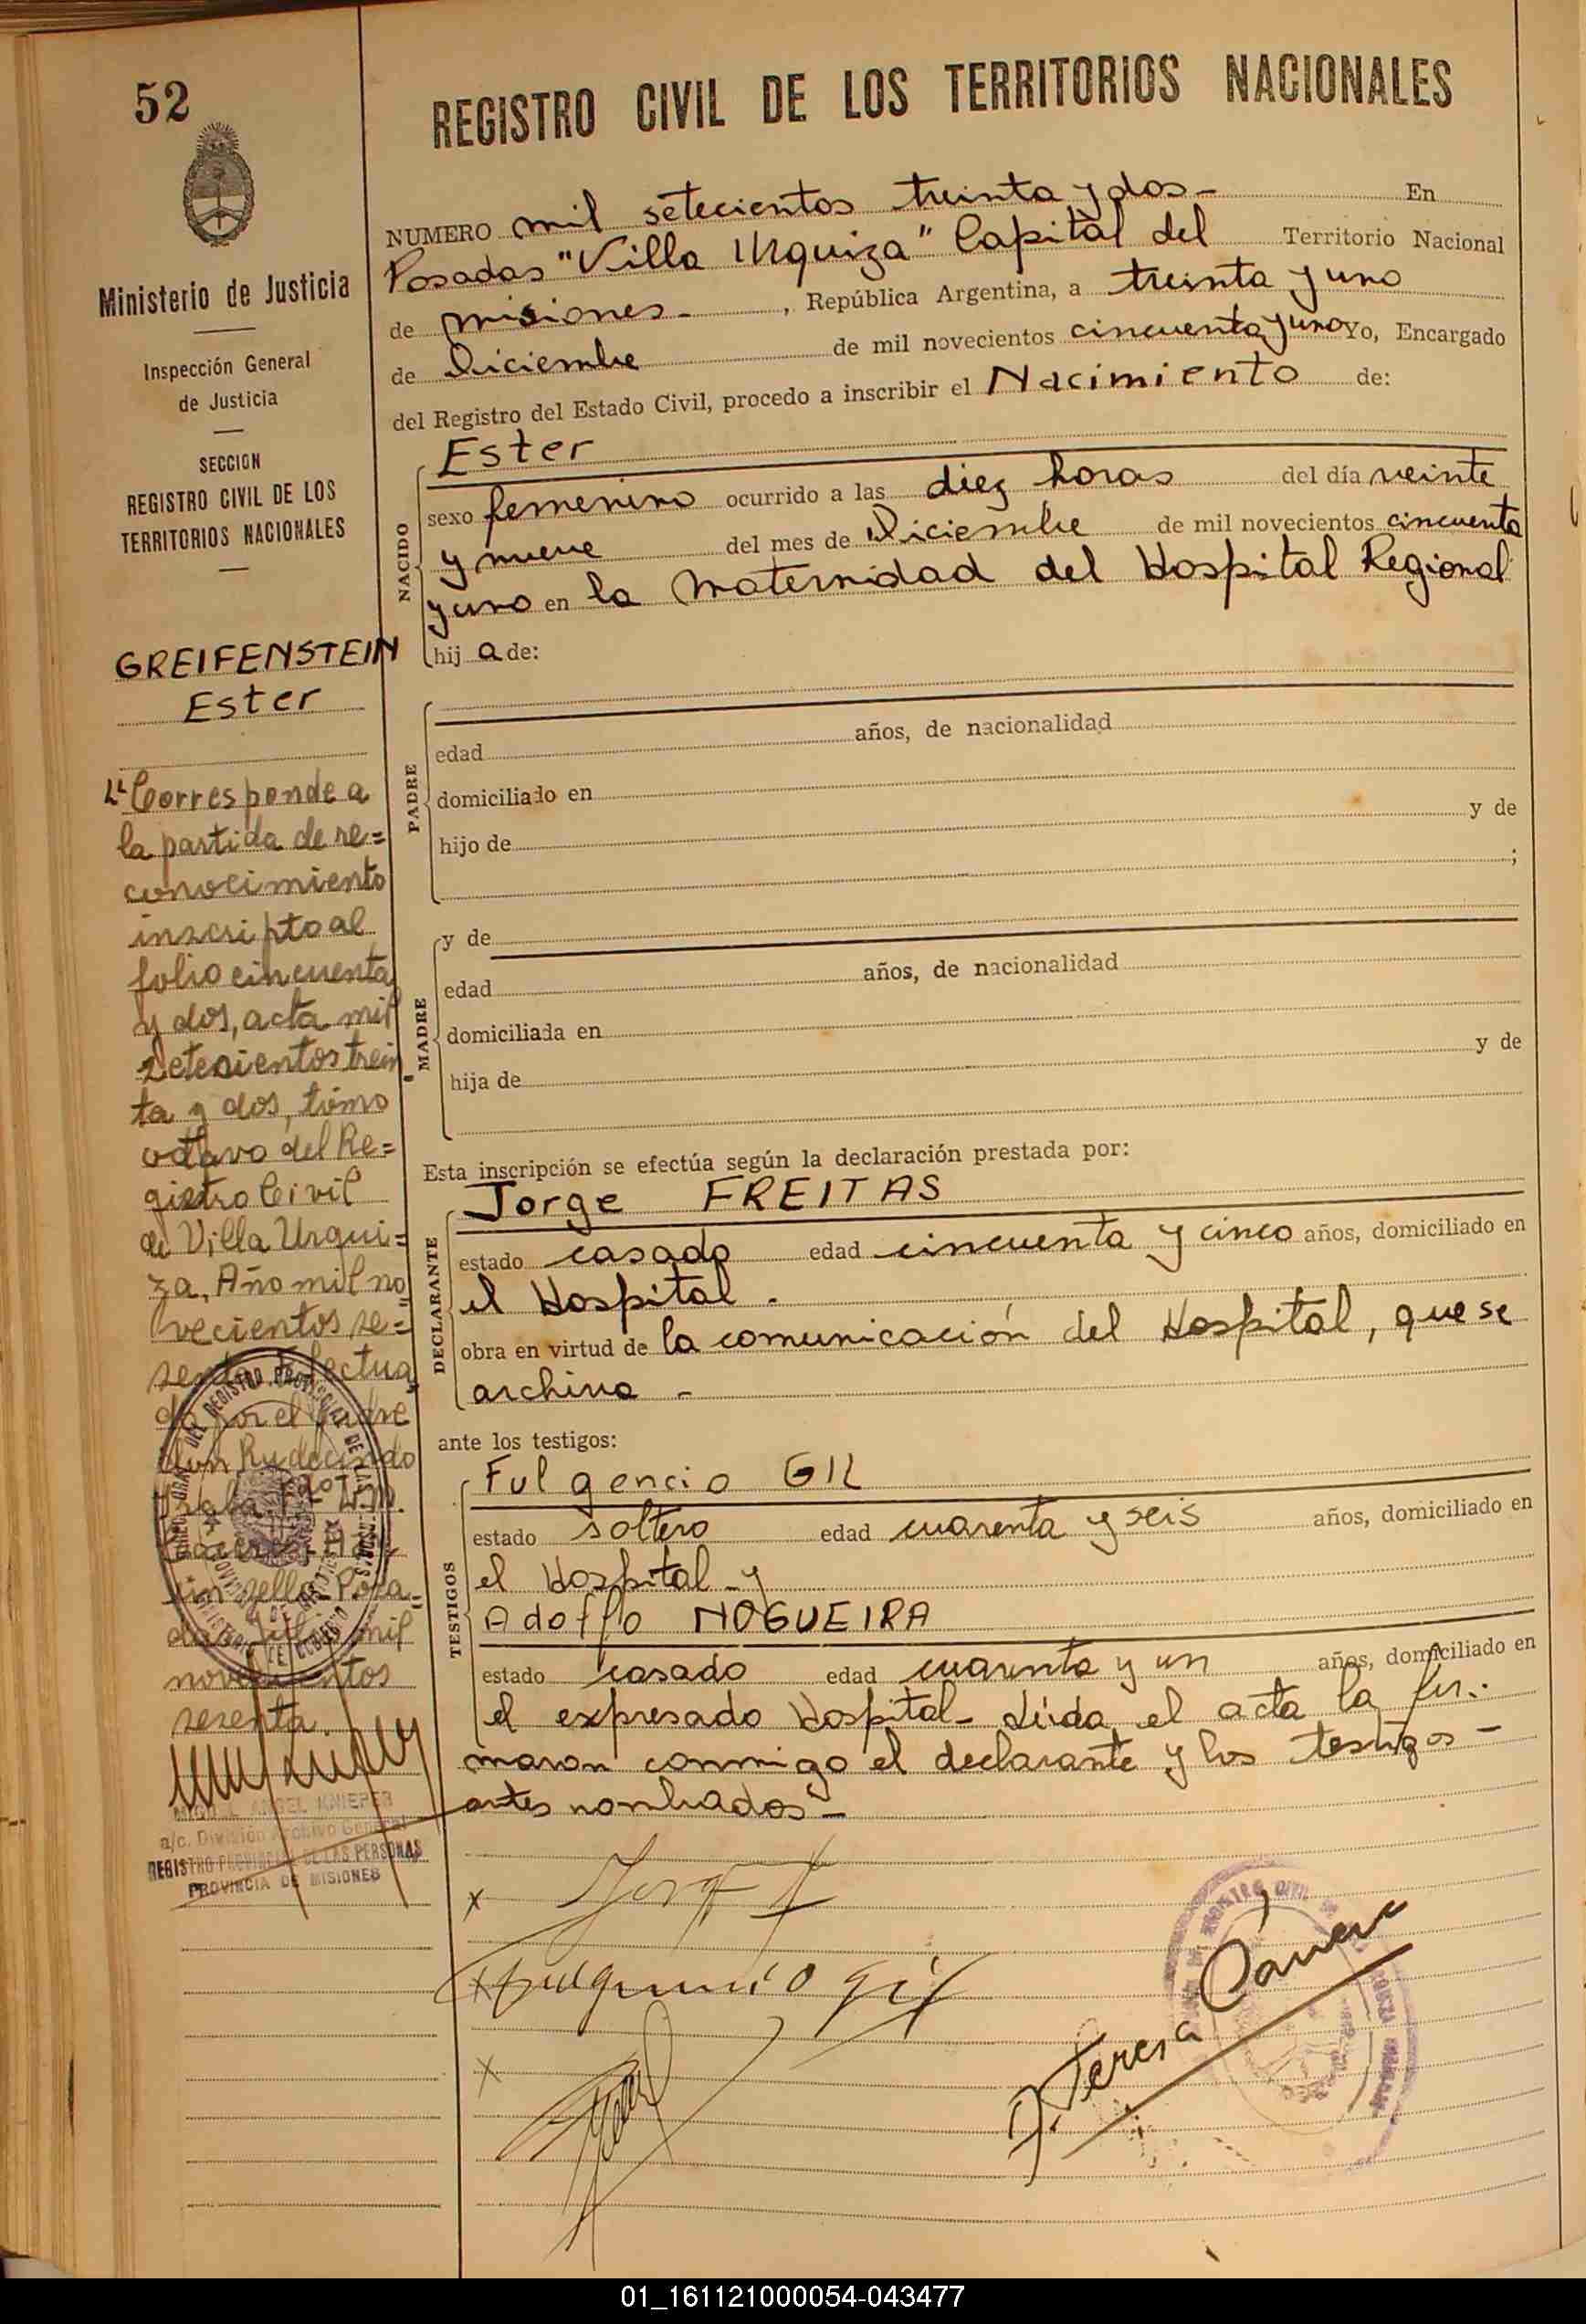 52
REGISTRO CIVIL DE LOS TERRITORIOS NACIONALES
Ministerio de Justicia
Inspección General
de Justicia
SECCION
REGISTRO CIVIL DE LOS
TERRITORIOS NACIONALES
GREIFENSTEIN
Ester
Corresponde a
la partida de re=
conocimiento
inscripto al
folio cincuenta
y dos, acta mil
setecientos trein
ta y dos, tomo
octavo del Re=
gistro Civil
de Villa Urqui=
za, Año mil no
vecientos se=
senta. Efectua
do por el padre
don Rudecindo
sin sello. Posa=
das mil
novecientos
sesenta.
MIGUEL ANGEL KNIEPER
a/c. División Archivo General
REGISTRO PROVINCIAL DE LAS PERSONAS
PROVINCIA DE MISIONES
NUMERO mil setecientos treinta y dos - En
Posadas "Villa Urquiza" Capital del Territorio Nacional
de misiones - , República Argentina, a treinta y uno
de Diciembre de mil novecientos cincuenta y uno Yo, Encargado
del Registro del Estado Civil, procedo a inscribir el Nacimiento de:
NACIDO
Ester
sexo femenino ocurrido a las diez horas del día veinte
y nueve del mes de Diciembre de mil novecientos cincuenta
y uno en la Maternidad del Hospital Regional
hij a de:
PADRE
edad años, de nacionalidad
domiciliado en
hijo de y de
;
MADRE
y de
edad años, de nacionalidad
domiciliada en
hija de y de
Esta inscripción se efectúa según la declaración prestada por:
DECLARANTE
Jorge FREITAS
estado casado edad cincuenta y cinco años, domiciliado en
el Hospital -
obra en virtud de la comunicación del Hospital, que se
archiva -
ante los testigos:
TESTIGOS
Fulgencio GIL
estado soltero edad cuarenta y seis años, domiciliado en
el Hospital - y
Adolfo NOGUEIRA
estado casado edad cuarenta y un años, domiciliado en
el expresado Hospital - Leída el acta la fir-
maron conmigo el declarante y los testigos -
antes nombrados -
x
x Fulgencio Gil
x
J. Teresa
01_161121000054-043477